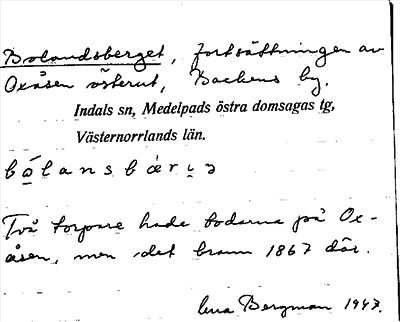 Bolandsberget, fortsättningen av
Oxåsen österut, Backens by.
Indals sn, Medelpads östra domsagas tg,
Västernorrlands län.
Två torpare hade bodarna på Ox-
åsen, men det brann 1867 där.
Lena Bergman 1947.